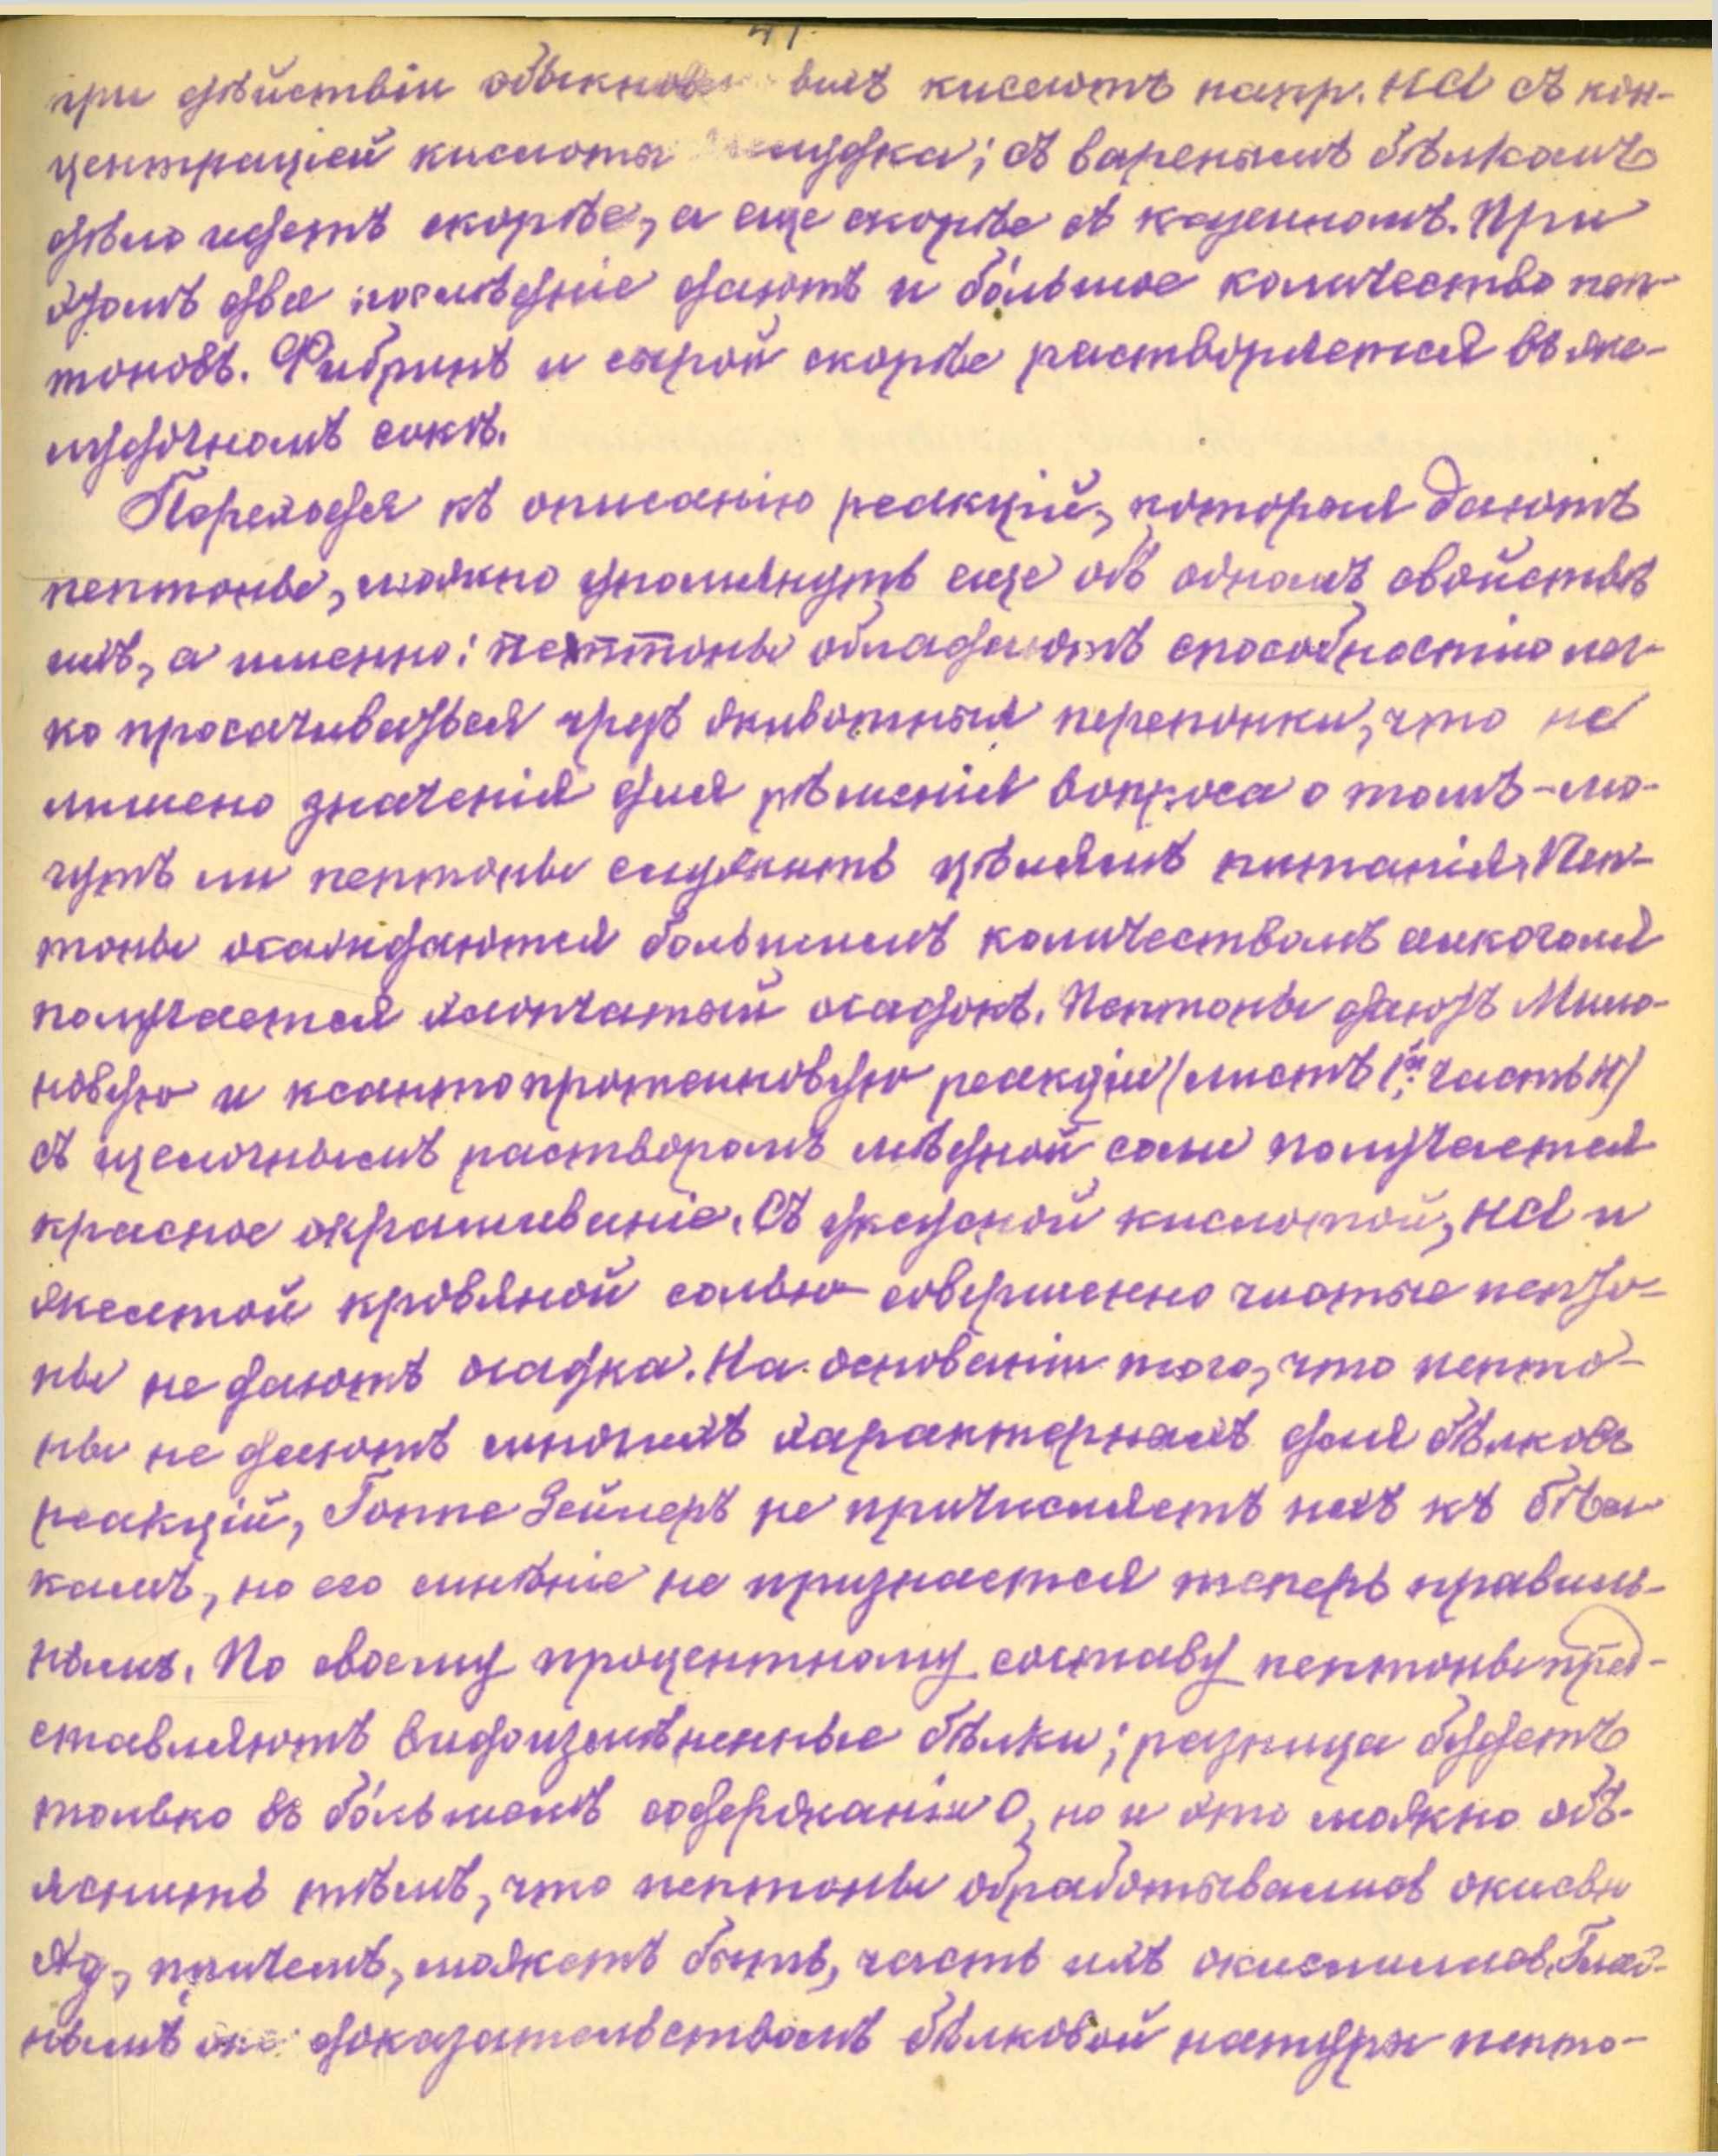 41.
при дѣйствіи обыкнове выхъ кислотъ напр. HCl съ кон-
центраціей кислоты желудка; съ варенымъ бѣлкомъ
дѣло идетъ скорѣе, а еще скорѣе съ казеиномъ. При
этомъ два послѣдніе даютъ и бо́льшое количество пеп-
тоновъ. Фибринъ и сырой скорѣе растворяется въ же-
лудочномъ сокѣ.
Переходя къ описанію реакцій, которыя даютъ
пептоны, можно упомянуть еще объ одномъ свойствѣ
ихъ, а именно: пептоны обладаютъ способностію лег-
ко просачиваться чрезъ животныя перепонки, что не
лишено значенія для рѣшенія вопроса о томъ - мо-
гутъ ли пептоны служить цѣлямъ питанія. Пеп-
тоны осаждаются большимъ количествомъ алкоголя
получается хлопчатый осадокъ. Пептоны даютъ Мило-
новую и ксантопротеиновую реакціи (листъ 1й часть II)
съ щелочнымъ растворомъ мѣдной соли получается
красное окрашиваніе. Съ уксусной кислотой, HCl и
желтой кровяной солью совершенно чистые пепто-
ны не даютъ осадка. На основаніи того, что пепто-
ны не даютъ многихъ характерныхъ для бѣлковъ
реакцій, Гоппе Зейлеръ не причисляетъ ихъ къ бѣл-
камъ, но его мнѣніе не признается теперь правиль-
нымъ. По своему процентному составу пептоны пред-
ставляютъ видоизмѣненные бѣлки; разница будетъ
только въ бо́льшемъ содержаніи О, но и это можно объ-
яснить тѣмъ, что пептоны обрабатывались окисью
Ag, причемъ, можетъ быть, часть ихъ окислилась. Глав-
нымъ доказательствомъ бѣлковой натуры пепто-